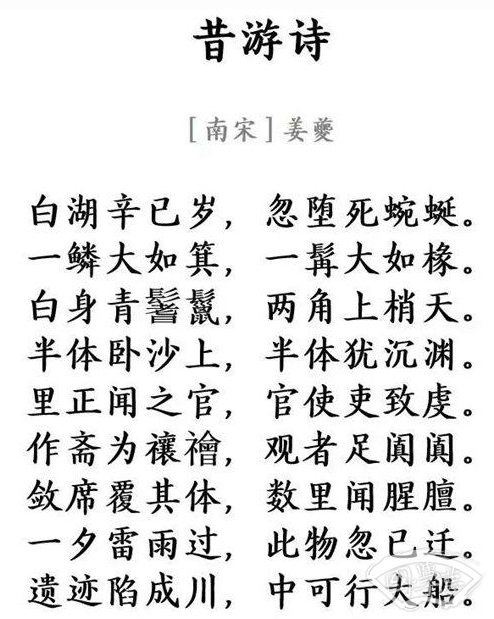 昔游诗
[南宋]姜夔
白湖辛已岁，忽堕死蜿蜒。
一鳞大如箕，一髯大如椽。
白身青鬐鬣，两角上梢天。
半体卧沙上，半体犹沉渊。
里正闻之官，官使吏致虔。
作斋为禳禬，观者足阗阗。
敛席覆其体，数里闻腥膻。
一夕雷雨过，此物忽已迁。
遗迹陷成川，中可行大船。